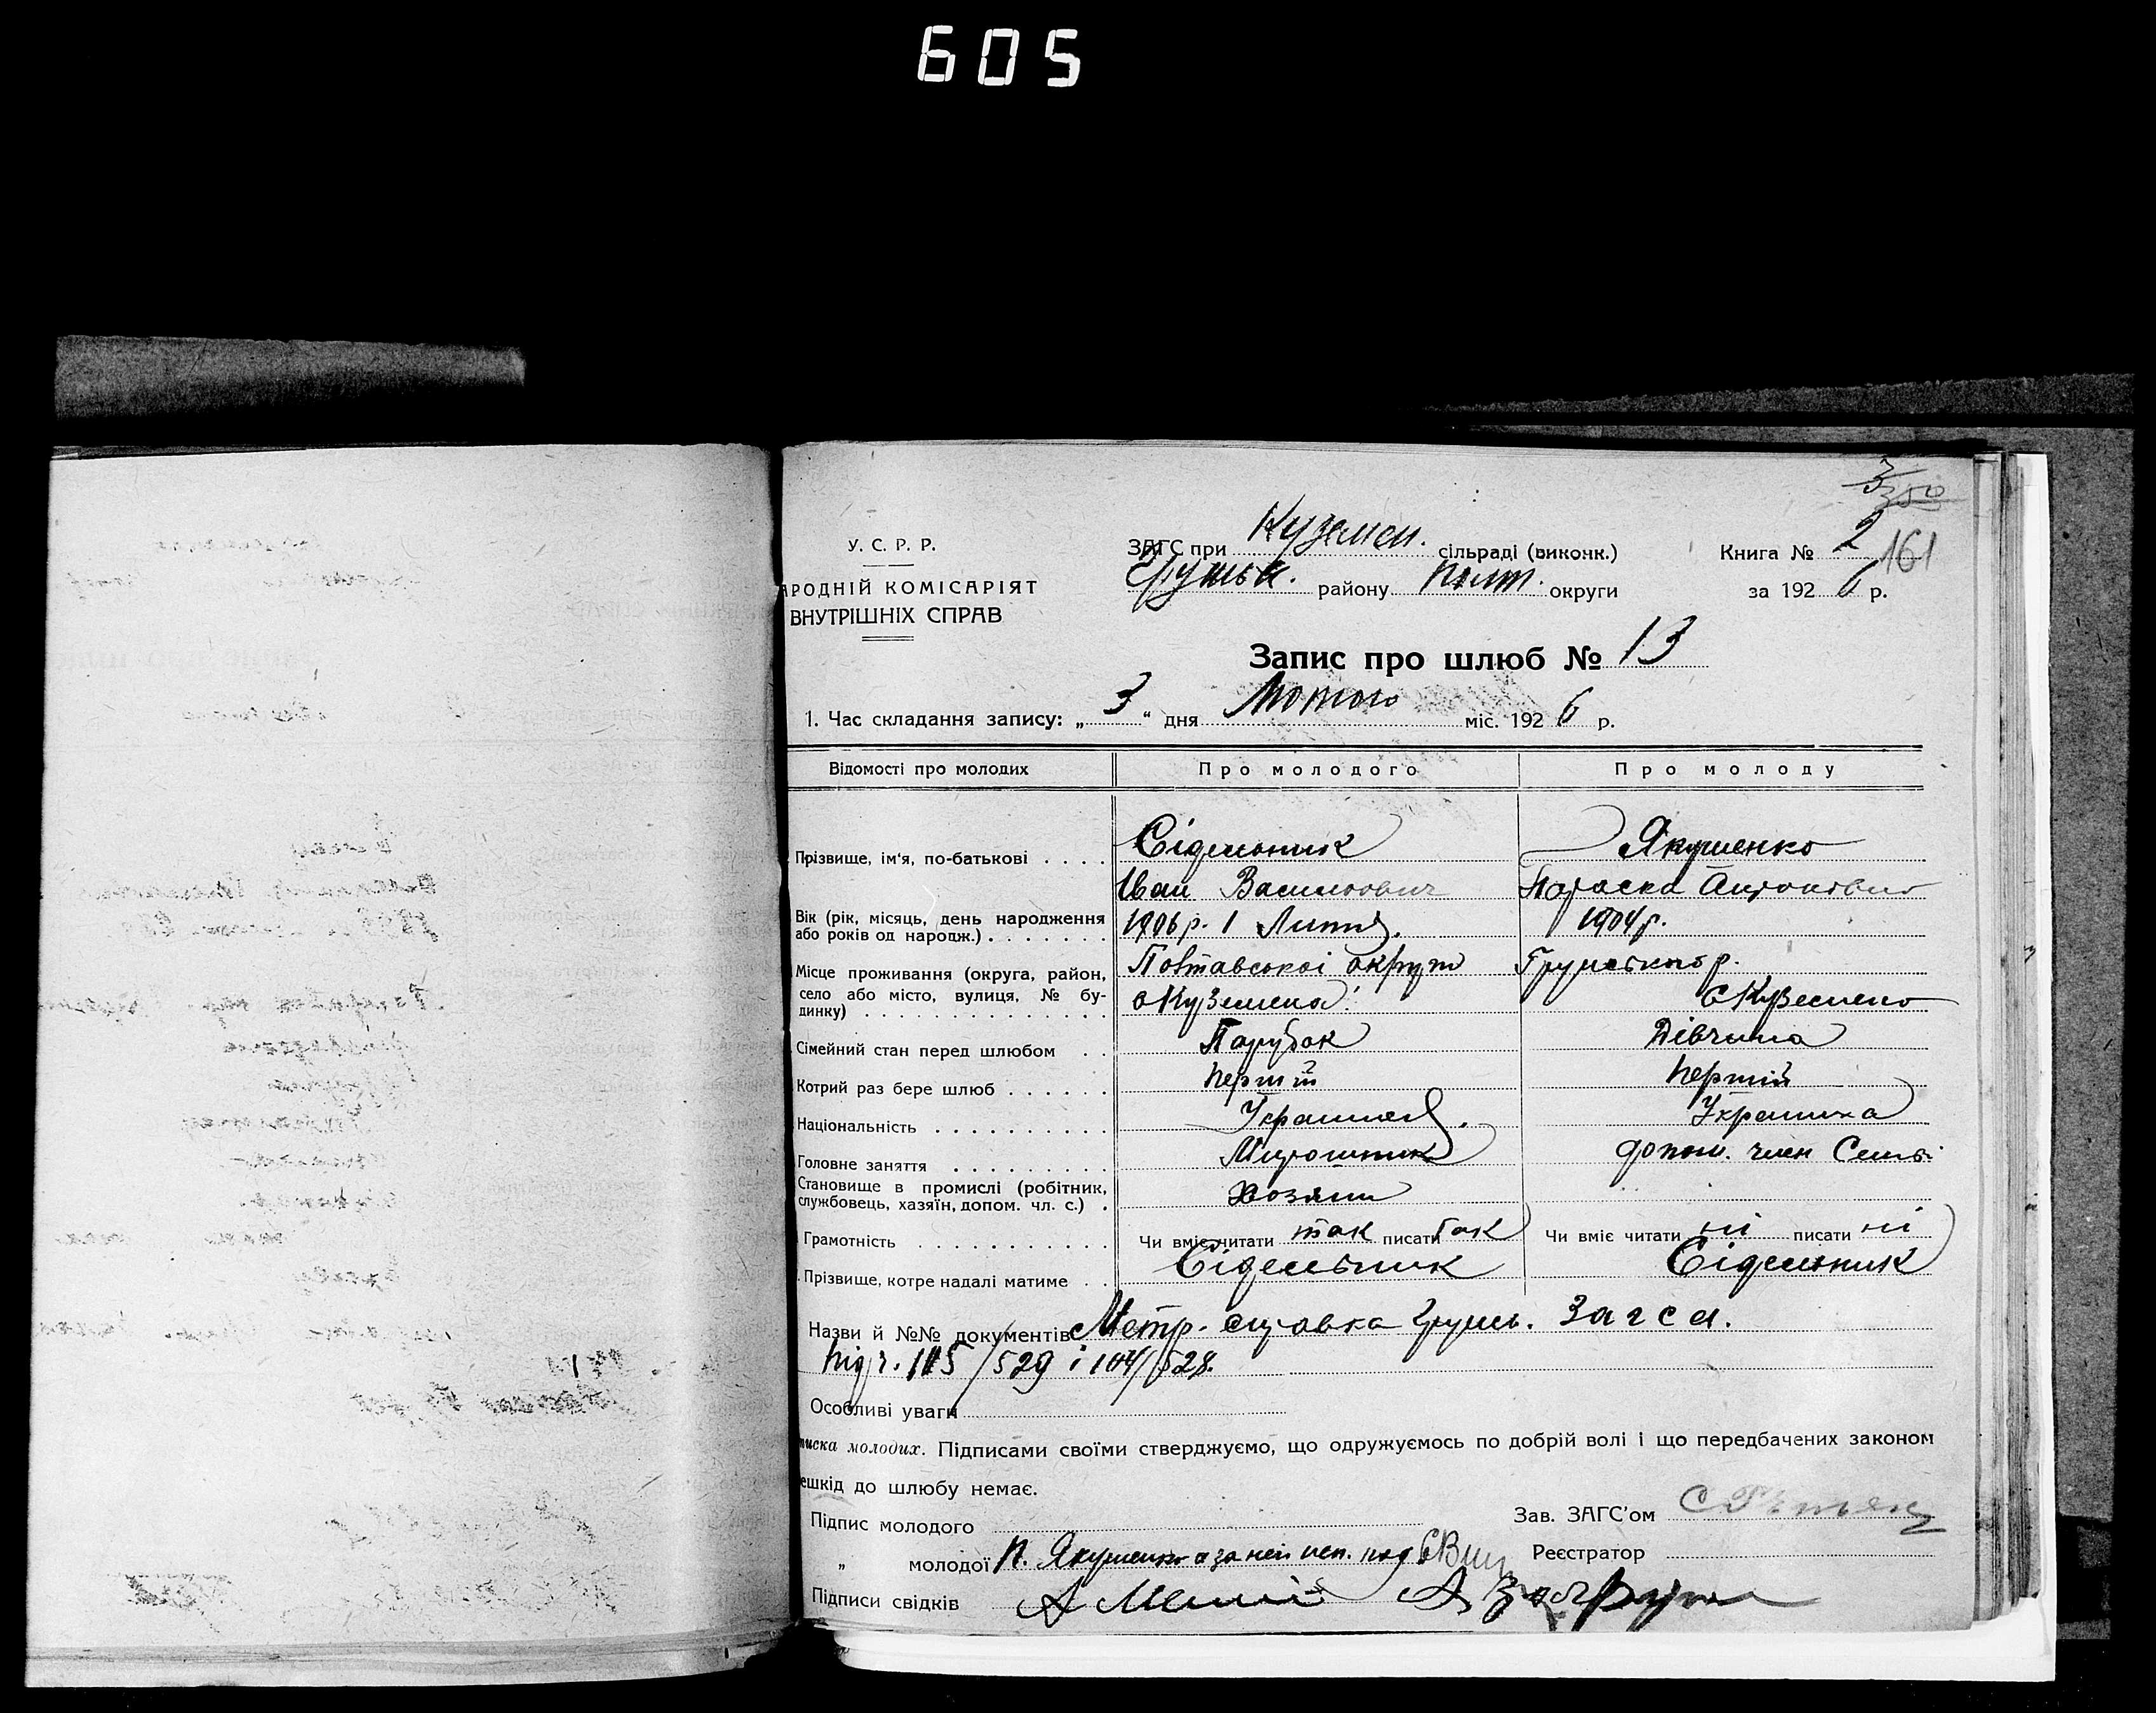 605
3
350
161
У. С. Р. Р.
АРОДНІЙ КОМІСАРІЯТ
ВНУТРІШНІХ СПРАВ
ЗАГС при Куземен. сільраді (виконк.)
Грунськ. району Полт. округи
Книга № 2
за 1926 р.
Запис про шлюб № 13
1. Час складання запису: „ 3 “ дня Лютого міс. 1926 р.
Відомості про молодих Про молодого Про молоду
Прізвище, ім'я, по-батькові . . . . Сідельник Якушенко
Іван Васильович Параска
Вік (рік, місяць, день народження або років од народж.) . . . . . . . 1906 р. 1 1904 р.
Місце проживання (округа, район, село або місто, вулиця, № будинку) . . . . Полтавської округи Грунського р.
с Куземена с Куземено
Сімейний стан перед шлюбом . . Парубок Дівчина
Котрий раз бере шлюб . . . . . . перший перший
Національність . . . . . . . . . . Українець. Українка
Головне заняття . . . . . . . . . Мирошник допом. член Семьї
Становище в промислі (робітник, службовець, хазяїн, допом. чл. с.) . Хозяин
Грамотність . . . . . . . . . . . Чи вміє читати так писати так Чи вміє читати ні писати ні
Прізвище, котре надалі матиме . . Сідельник Сідельник
Назви й №№ документів Метр. справка Грунь. Загса.
під ч. 115/529 і 104/528.
Особливі уваги
писка молодих. Підписами своїми стверджуємо, що одружуємось по добрій волі і що передбачених законом
ешкід до шлюбу немає.
Підпис молодого
Зав. ЗАГС'ом
„ молодої П. Якушенко а за неї
Реєстратор
Підписи свідків